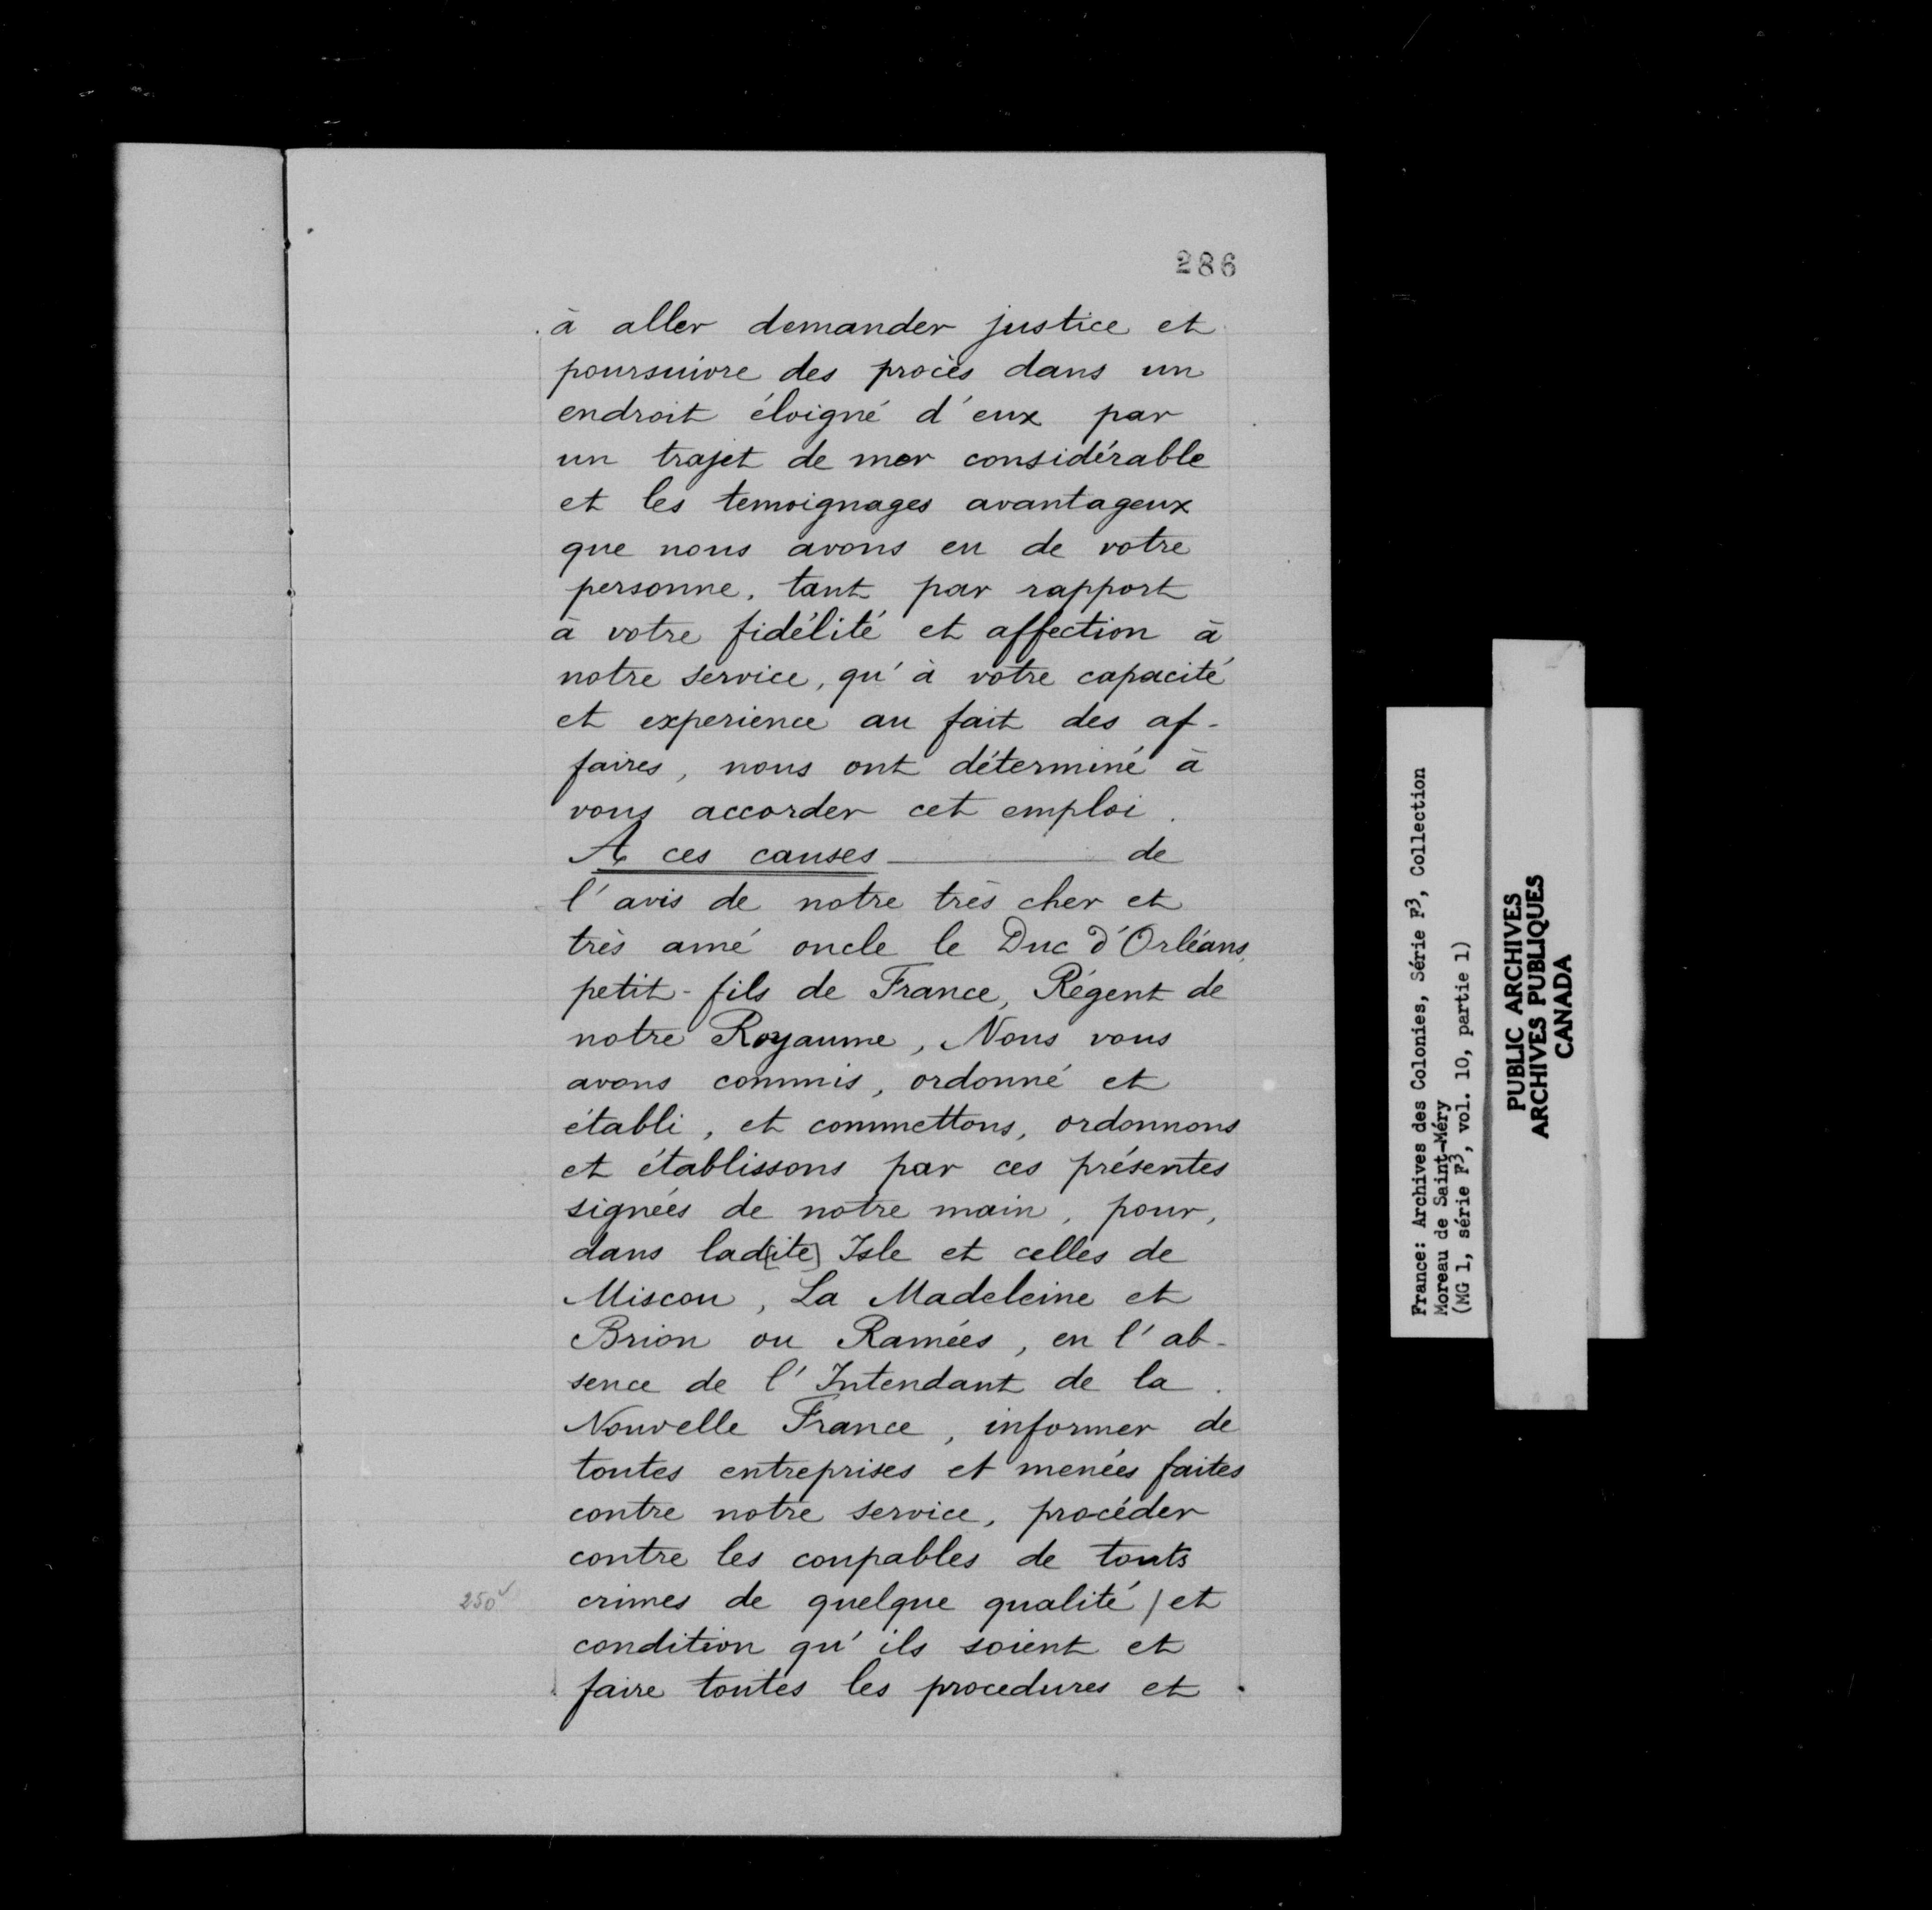 286
à aller demander justice et
poursuivre des procès dans un
endroit éloigné d'eux par
un trajet de mer considérable
et les temoignages avantageux
que nous avons eu de votre
personne, tant par rapport
à votre fidélité et affection à
notre service, qu'à votre capacité
et experience au fait des af-
faires, nous ont déterminé à
vous accorder cet emploi.
A ces causes de
l'avis de notre très cher et
très amé oncle le Duc d'Orléans,
petit-fils de France, Régent de
notre Royaume, Nous vous
avons commis, ordonné et
établi, et commettons, ordonnons
et établissons par ces présentes
signées de notre main, pour,
dans lad[ite] Isle et celles de
Miscou, La Madeleine et
Brion ou Ramées, en l'ab-
sence de l'Intendant de la
Nouvelle France, informer de
toutes entreprises et menées faites
contre notre service, procéder
contre les coupables de touts
250v crimes de quelque qualité / et
condition qu'ils soient et
faire toutes les procedures et
France: Archives des Colonies, Série F3, Collection
Moreau de Saint-Méry
(MG 1, série F3, vol. 10, partie 1)
PUBLIC ARCHIVES
ARCHIVES PUBLIQUES
CANADA